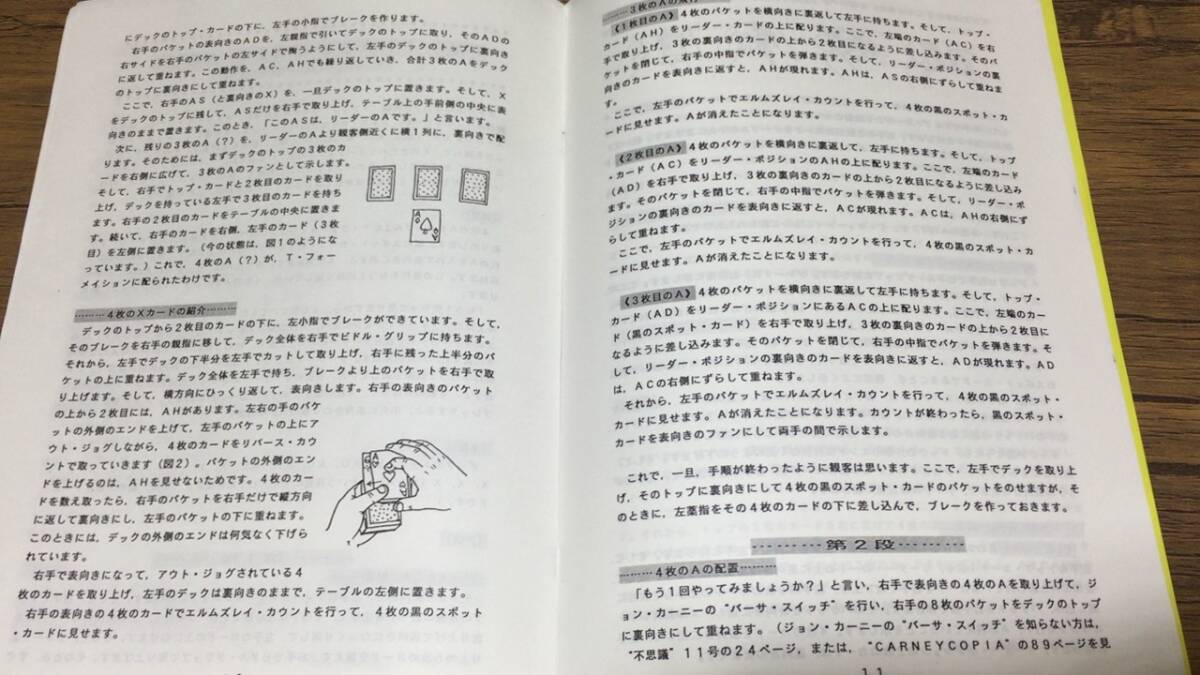 にデックのトップ・カードの下に，左手の小指でブレークを作ります。
右手のパケットの表向きのＡＤを，左親指で引いてデックのトップに取り，そのＡＤの
右サイドを右手のパケットの左サイドで掬うようにして，左手のデックのトップに裏向き
に返して重ねます。この動作を，ＡＣ，ＡＨでも繰り返していき，合計３枚のＡをデック
のトップに裏向きにして重ねます。
ここで，右手のＡＳ（と裏向きのＸ）を，一旦デックのトップに置きます。そして，Ｘ
をデックのトップに残して，ＡＳだけを右手で取り上げ，テーブル上の手前側の中央に表
向きのままで置きます。このとき，「このＡＳは，リーダーのＡです。」と言います。
次に，残りの３枚のＡ（？）を，リーダーのＡより観客側近くに横１列に，裏向きで配
ります。そのためには，まずデックのトップの３枚のカ
ードを右側に広げて，３枚のＡのファンとして示します。
そして，右手でトップ・カードと２枚目のカードを取り
上げ，デックを持っている左手で３枚目のカードを持ち
ます。右手の２枚目のカードをテーブルの中央に置きま
す。続いて，右手のカードを右側，左手のカード（３枚
目）を左側に置きます。（今の状態は，図１のようにな
っています。）これで，４枚のＡ（？）が，Ｔ・フォー
メイションに配られたわけです。
………４枚のＸカードの紹介………
デックのトップから２枚目のカードの下に，左小指でブレークができています。そして，
そのブレークを右手の親指に移して，デック全体を右手でビドル・グリップに持ちます。
それから，左手でデックの下半分を左手でカットして取り上げ，右手に残った上半分のパ
ケットの上に重ねます。デック全体を左手で持ち，ブレークより上のパケットを右手で取
り上げます。そして，横方向にひっくり返して，表向きします。右手の表向きのパケット
の上から２枚目には，ＡＨがあります。左右の手のパケ
ットの外側のエンドを上げて，左手のパケットの上にア
ウト・ジョグしながら，４枚のカードをリバース・カウ
ントで取っていきます（図２）。パケットの外側のエン
ドを上げるのは，ＡＨを見せないためです。４枚のカー
ドを数え取ったら，右手のパケットを右手だけで縦方向
に返して裏向きにし，左手のパケットの下に重ねます。
このときには，デックの外側のエンドは何気なく下げら
れています。
右手で表向きになって，アウト・ジョグされている４
枚のカードを取り上げ，左手のデックは裏向きのままで，テーブルの左側に置きます。
右手の表向きの４枚のカードでエルムズレイ・カウントを行って，４枚の黒のスポット
・カードに見せます。
《１枚目のＡ》４枚のパケットを横向きに裏返して左手に持ちます。そして，トップ・
カード（ＡＨ）をリーダー・カードの上に配ります。ここで，左端のカード（ＡＣ）を右
手で取り上げ，３枚の裏向きのカードの上から２枚目になるように差し込みます。そのパ
ケットを閉じて，右手の中指でパケットを弾きます。そして，リーダー・ポジションの裏
向きのカードを表向きに返すと，ＡＨが現れます。ＡＨは，ＡＳの右側にずらして重ねま
す。
ここで，左手のパケットでエルムズレイ・カウントを行って，４枚の黒のスポット・カ
ードに見せます。Ａが消えたことになります。
《２枚目のＡ》４枚のパケットを横向きに裏返して，左手に持ちます。そして，トップ
・カード（ＡＣ）をリーダー・ポジションのＡＨの上に配ります。ここで，左端のカード
（ＡＤ）を右手で取り上げ，３枚の裏向きのカードの上から２枚目になるように差し込み
ます。そのパケットを閉じて，右手の中指でパケットを弾きます。そして，リーダー・ポ
ジションの裏向きのカードを表向きに返すと，ＡＣが現れます。ＡＣは，ＡＨの右側にず
らして重ねます。
ここで，左手のパケットでエルムズレイ・カウントを行って，４枚の黒のスポット・カ
ードに見せます。Ａが消えたことになります。
《３枚目のＡ》４枚のパケットを横向きに裏返して左手に持ちます。そして，トップ・
カード（ＡＤ）をリーダー・ポジションにあるＡＣの上に配ります。ここで，左端のカー
ド（黒のスポット・カード）を右手で取り上げ，３枚の裏向きのカードの上から２枚目に
なるように差し込みます。そのパケットを閉じて，右手の中指でパケットを弾きます。そ
して，リーダー・ポジションの裏向きのカードを表向きに返すと，ＡＤが現れます。ＡＤ
は，ＡＣの右側にずらして重ねます。
それから，左手のパケットでエルムズレイ・カウントを行って，４枚の黒のスポット・
カードに見せます。Ａが消えたことになります。カウントが終わったら，黒のスポット・
カードを表向きのファンにして両手の間で示します。
これで，一旦，手順が終わったように観客は思います。ここで，左手でデックを取り上
げ，そのトップに裏向きにして４枚の黒のスポット・カードのパケットをのせますが，そ
のときに，左薬指をその４枚のカードの下に差し込んで，ブレークを作っておきます。
………… 第２段 …………
………４枚のＡの配置………
「もう１回やってみましょうか？」と言い，右手で表向きの４枚のＡを取り上げて，ジ
ョン・カーニーの“バーサ・スイッチ”を行い，右手の８枚のパケットをデックのトップ
に裏向きにして重ねます。（ジョン・カーニーの“バーサ・スイッチ”を知らない方は，
“不思議”１１号の２４ページ，または，“ＣＡＲＮＥＹＣＯＰＩＡ”の８９ページを見
１１